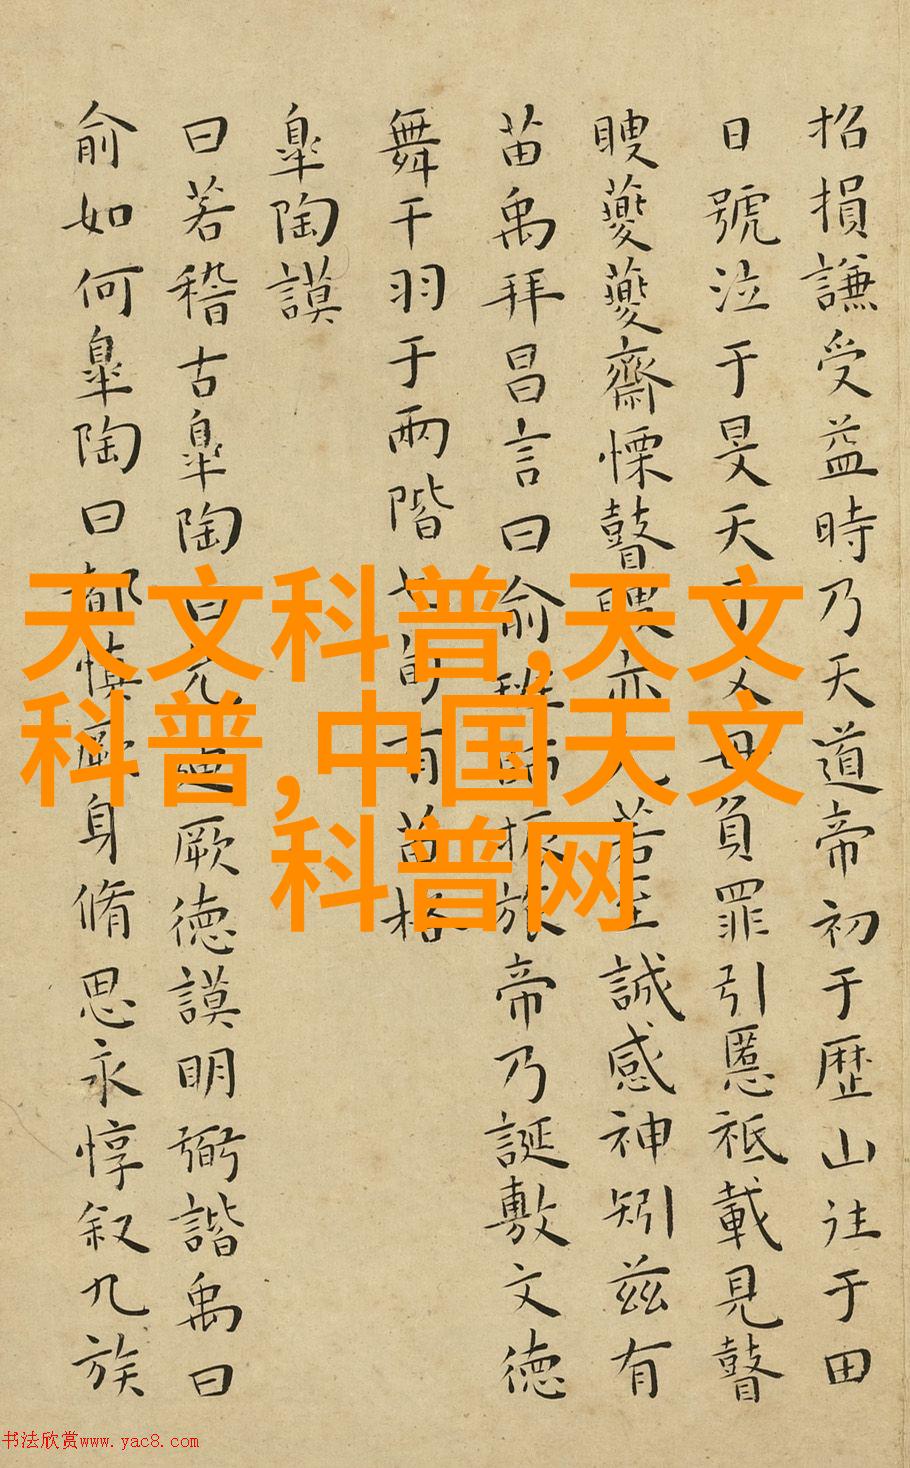 招損謙受益時乃天道帝初于歴山往于田
日號泣于旻天于父母負罪引慝祗載見瞽
瞍夔夔齋慄瞽瞍亦允若至諴感神矧茲有
苗禹拜昌言曰俞班師振旅帝乃誕敷文德
舞干羽于兩階七旬有苗格
皐陶謨
曰若稽古皐陶曰允迪厥德謨明弼諧禹曰
俞如何皐陶曰都慎厥身脩思永惇叙九族
天文科普,天文
科普,中国天文
科普网
书法欣赏www.yac8.com